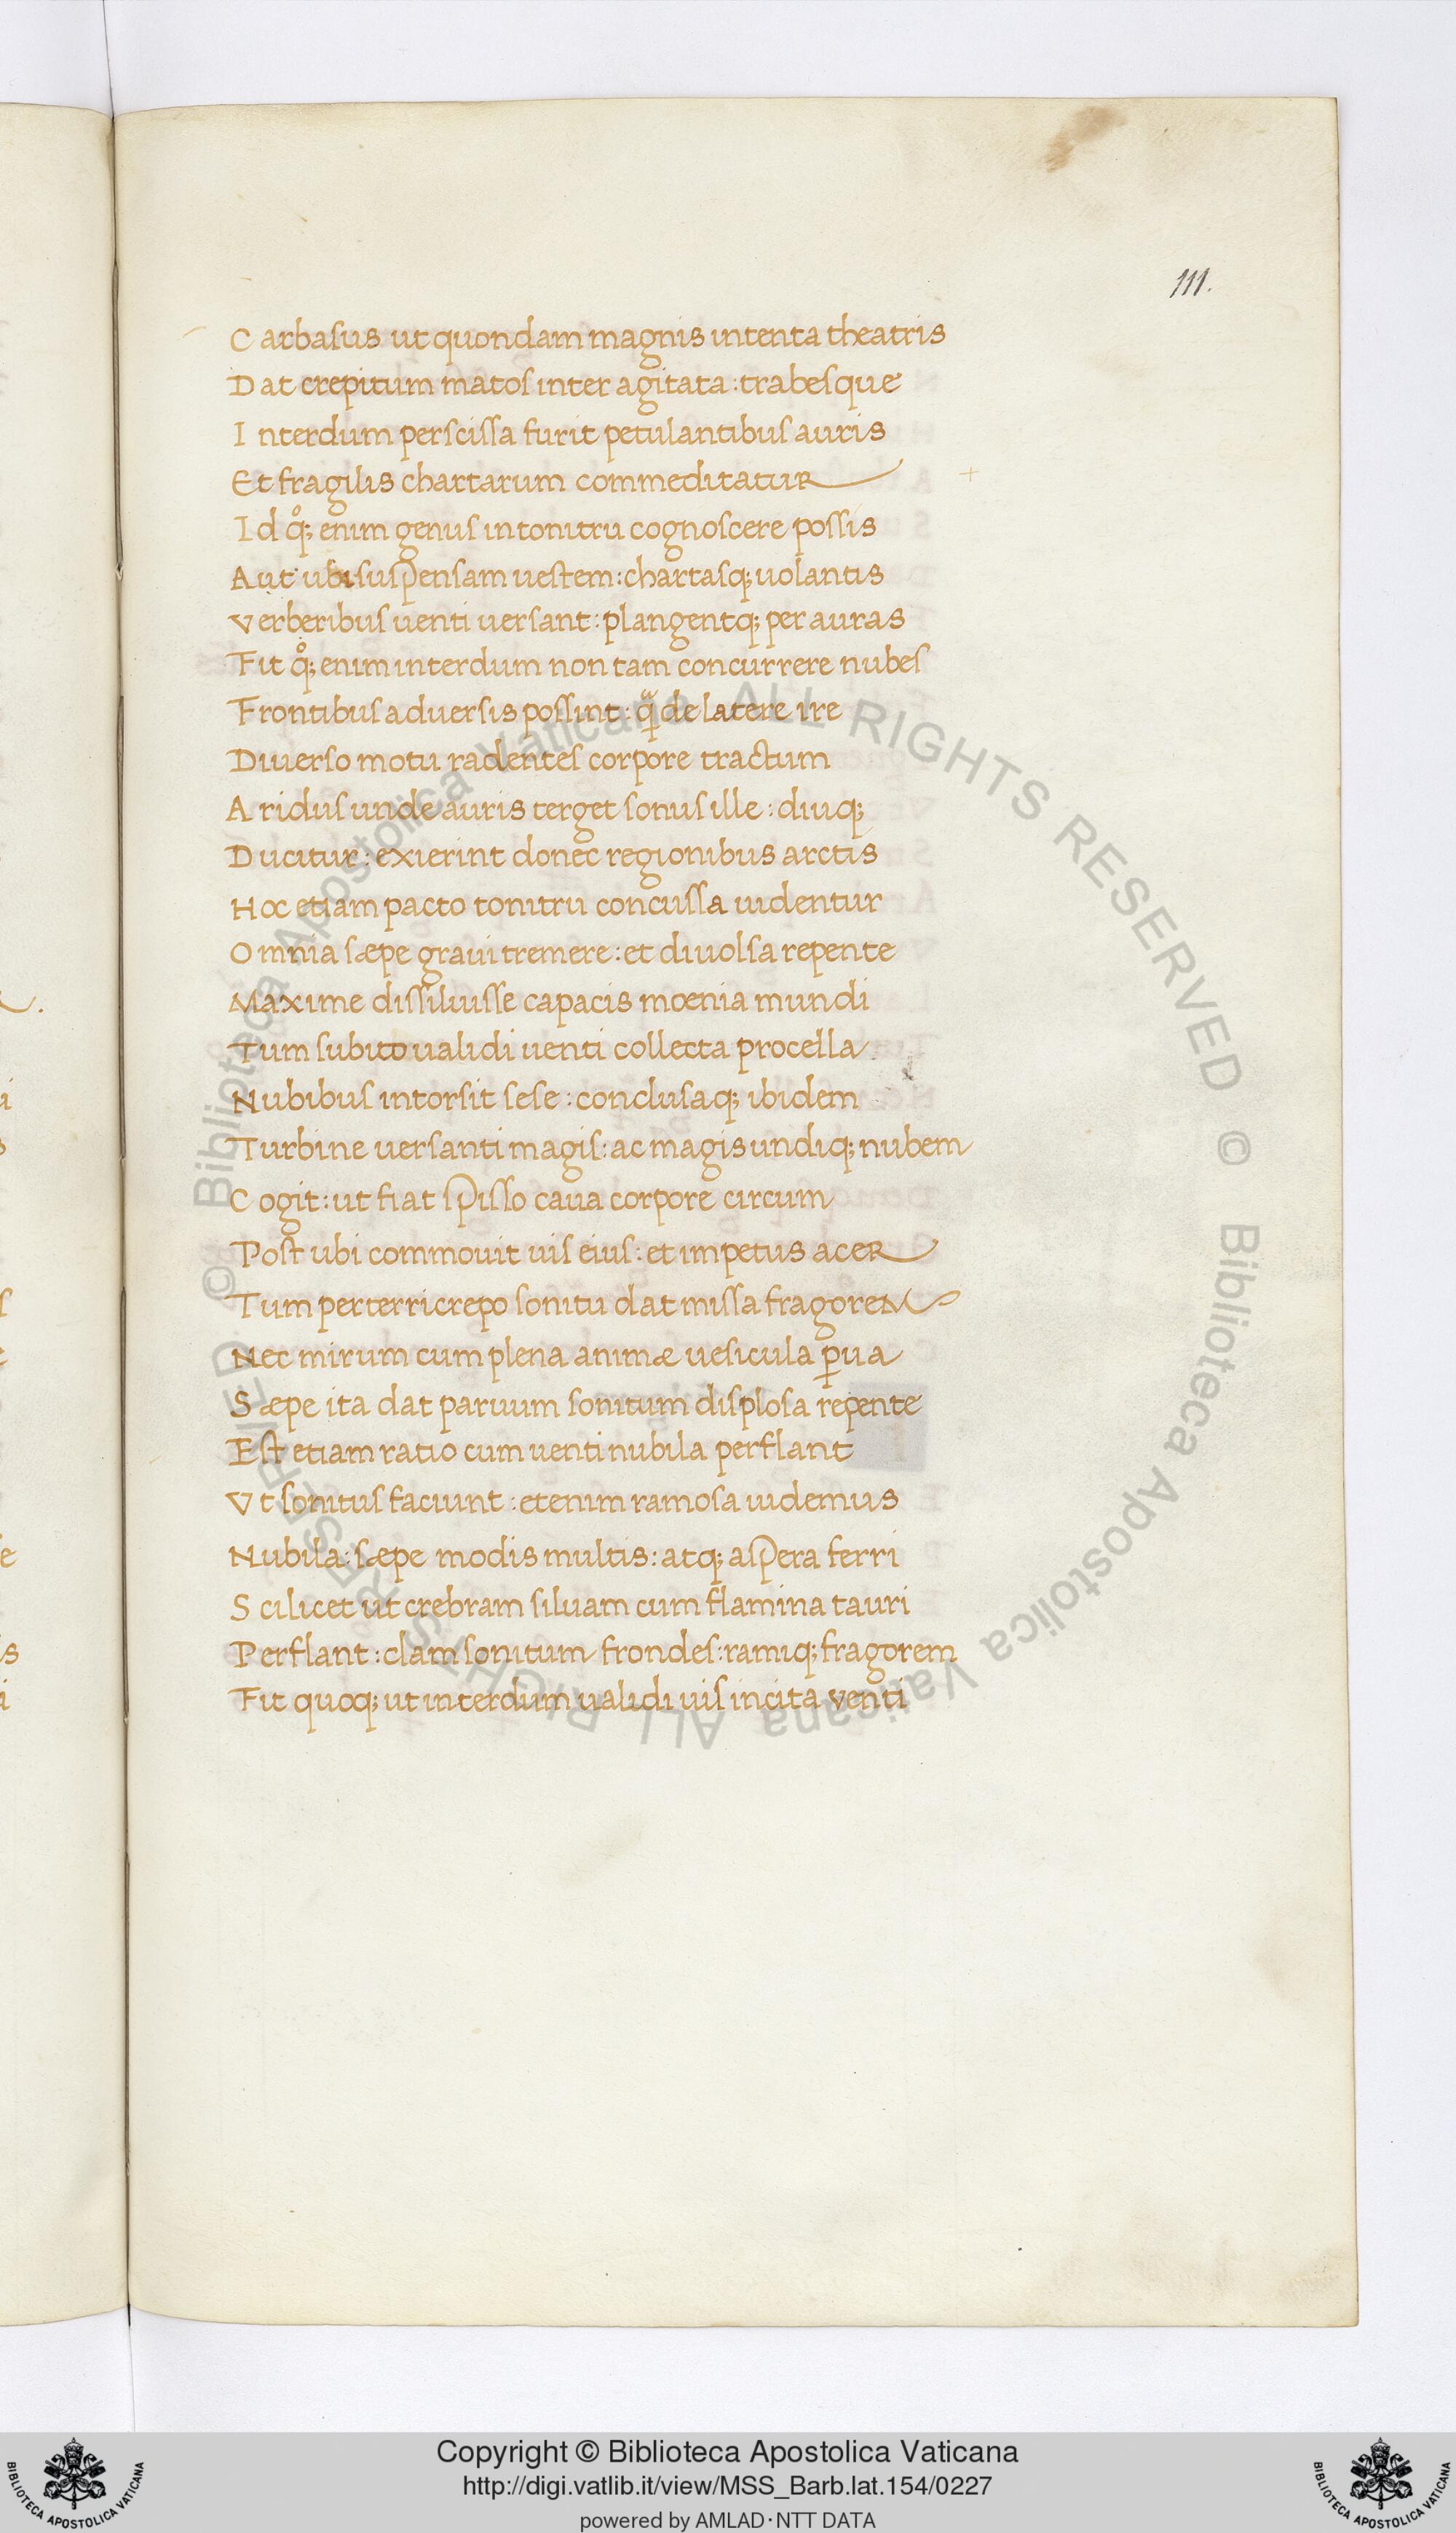 111.
Carbasus ut quondam magnis intenta theatris
Dat crepitum matos inter agitata : trabesque
Interdum perscissa furit petulantibus auris
Et fragilis chartarum commeditatur
Id qͦ; enim genus in tonitru cognoscere possis
Aut ubi suspensam uestem : chartasq; uolantis
Verberibus uenti uersant : plangentq; per auras
Fit qͦ; enim interdum non tam concurrere nubes
Frontibus aduersis possint : q̈ de latere ire
Diuerso motu radentes corpore tractum
Aridus unde auris terget sonus ille : diuq;
Ducitur : exierint donec regionibus arctis
Hoc etiam pacto tonitru concussa uidentur
Omnia sæpe graui tremere : et diuolsa repente
Maxime dissiluisse capacis mœnia mundi
Tum subito ualidi uenti collecta procella
Nubibus intorsit sese : conclusaq; ibidem
Turbine uersanti magis : ac magis undiq; nubem
Cogit : ut fiat spisso caua corpore circum
Post ubi commouit uis eius : et impetus acer
Tum perterricrepo sonitu dat missa fragorem
Nec mirum cum plena animæ uesicula ꝑua
Sæpe ita dat paruum sonitum displosa repente
Est etiam ratio cum uenti nubila perflant
Vt sonitus faciunt : etenim ramosa uidemus
Nubila : sæpe modis multis : atq; aspera ferri
Scilicet ut crebram siluam cum flamina tauri
Perflant : clam sonitum frondes : ramiq; fragorem
Fit quoq; ut interdum ualidi uis incita venti
© Biblioteca Apostolica Vaticana ALL RIGHTS RESERVED © Biblioteca Apostolica Vaticana ALL RIGHTS RESERVED
Copyright © Biblioteca Apostolica Vaticana
http://digi.vatlib.it/view/MSS_Barb.lat.154/0227
powered by AMLAD·NTT DATA
BIBLIOTECA APOSTOLICA VATICANA
BIBLIOTECA APOSTOLICA VATICANA